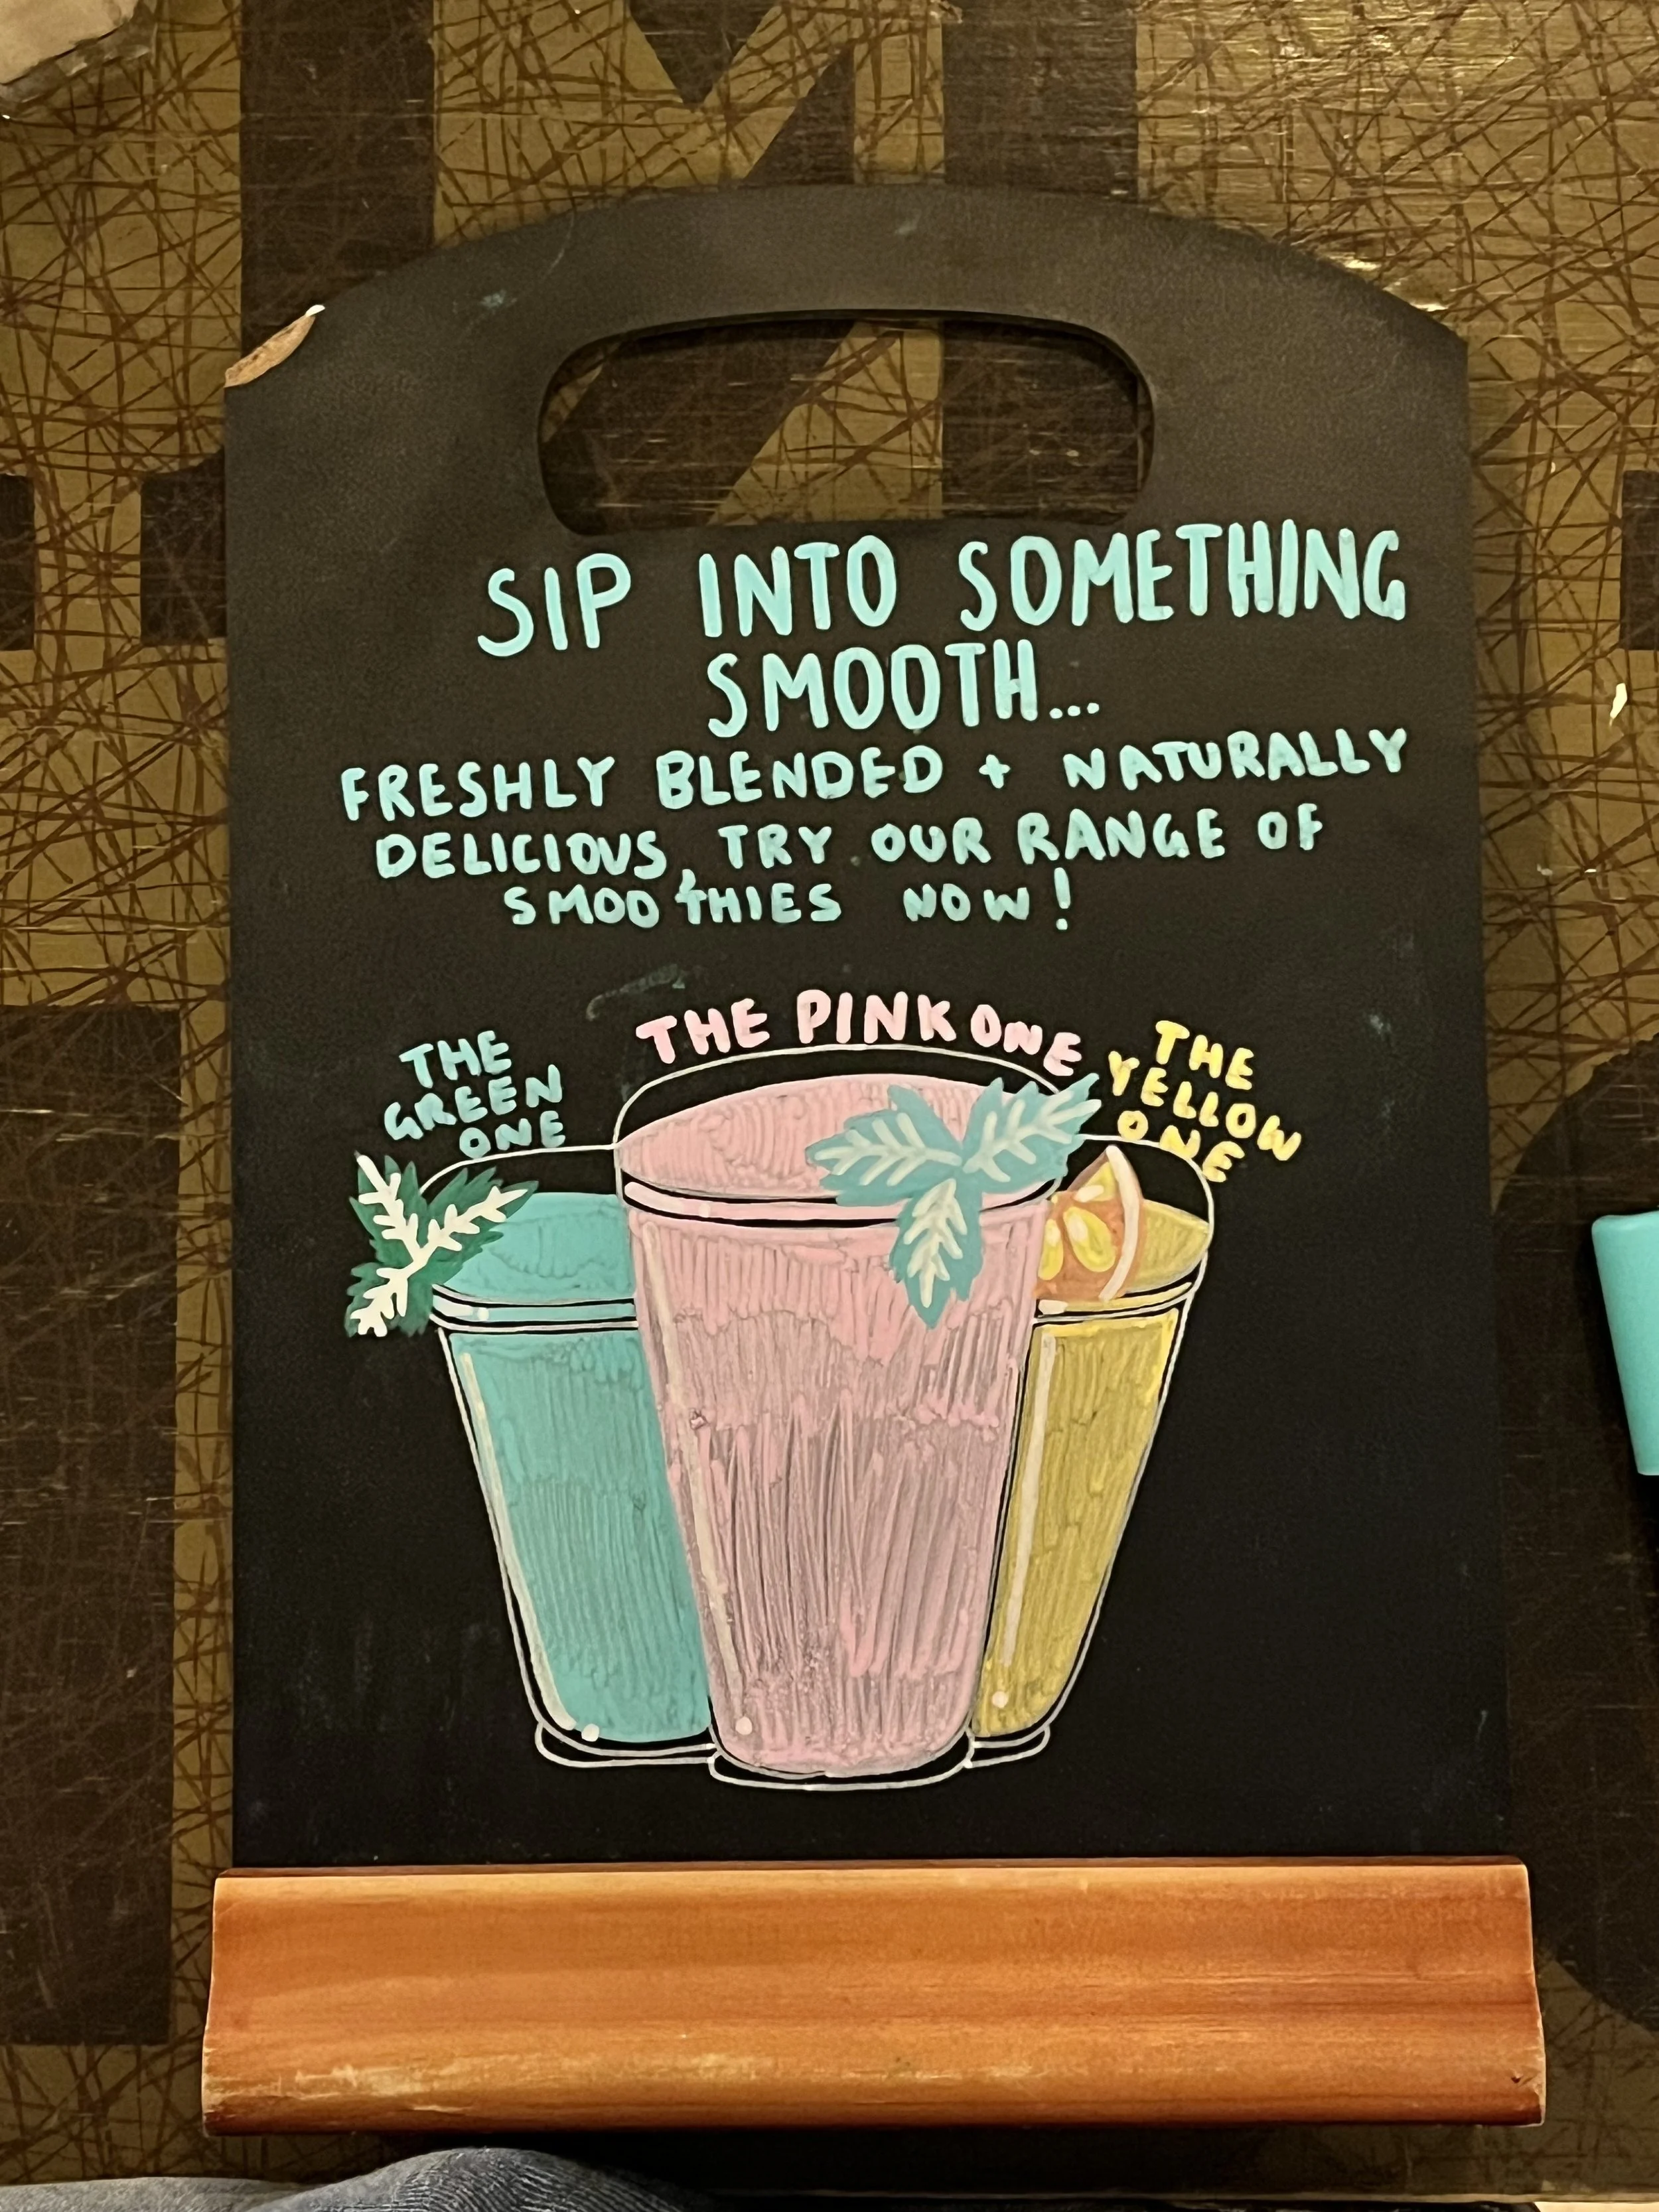 SIP INTO SOMETHING
SMOOTH...
FRESHLY BLENDED + NATURALLY
DELICIOUS, TRY OUR RANGE OF
SMOOTHIES NOW!
THE
GREEN
ONE
THE PINK ONE
THE
YELLOW
ONE